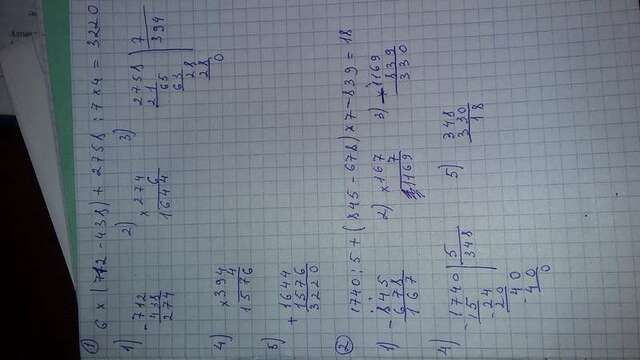 ① 6 × (712 - 438) + 2758 : 7 × 4 = 3220
1) - 712
438
274
2) × 274
6
1644
3) 2758 | 7
21 394
65
63
28
28
0
4) × 394
4
1576
5) + 1644
1576
3220
② 1740 : 5 + (845 - 678) × 7 - 839 = 18
1) - 845
678
167
2) × 167
7
1169
3) - 1169
839
330
4) - 1740 | 5
15 348
- 24
20
40
- 40
0
5) 348
330
18